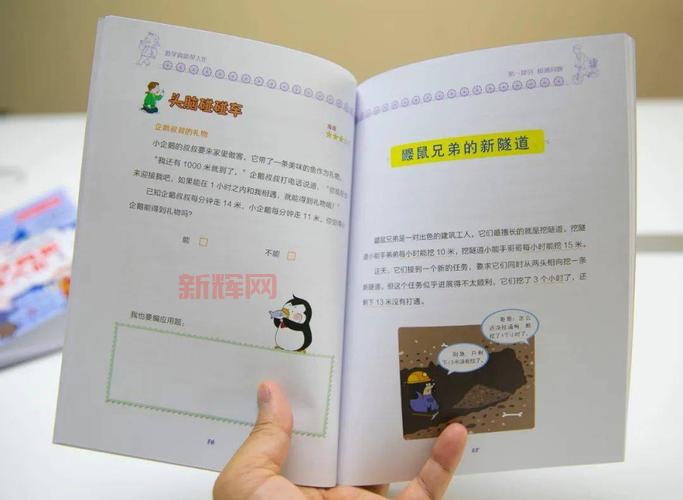 头脑碰碰车
难度
企鹅叔叔的礼物
小企鹅的叔叔要来家里做客，它带了一条美味的鱼作为礼物。
“我还有 1000 米就到了，”企鹅叔叔打电话说道，
来迎接我吧，如果能在 1 小时之内和我相遇，就能得到礼物哦！”
已知企鹅叔叔每分钟走 14 米，小企鹅每分钟走 11 米，
企鹅能得到礼物吗？
能
不能
新辉网
我也要编应用题：
第一部分 相遇问题
鼹鼠兄弟的新隧道
鼹鼠兄弟是一对出色的建筑工人，它们最擅长的就是挖隧道。挖隧
道小能手弟弟每小时能挖 10 米，挖隧道小能手哥哥每小时能挖 15 米。
这天，它们接到一个新的任务，要求它们同时从两头相向挖一条
新隧道，但这个任务似乎进展得不太顺利，它们挖了 3 个小时了，还
剩下 13 米没有打通。
哥哥：怎么
还没挖通啊，都
挖了3个小时了。
别急，只剩
下13米没有挖了。